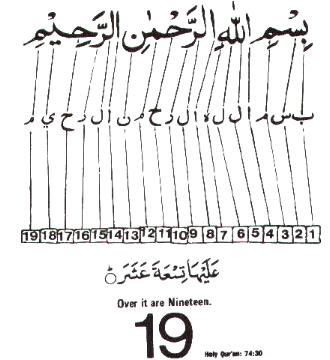 بِسْمِ اللهِ الرَّحْمٰنِ الرَّحِيْمِ
ب س م ا ل ل ه ا ل ر ح م ن ا ل ر ح ي م
19 18 17 16 15 14 13 12 11 10 9 8 7 6 5 4 3 2 1
عَلَيْهَا تِسْعَةَ عَشَرَ
Over it are Nineteen.
19
Holy Qur'an: 74:30